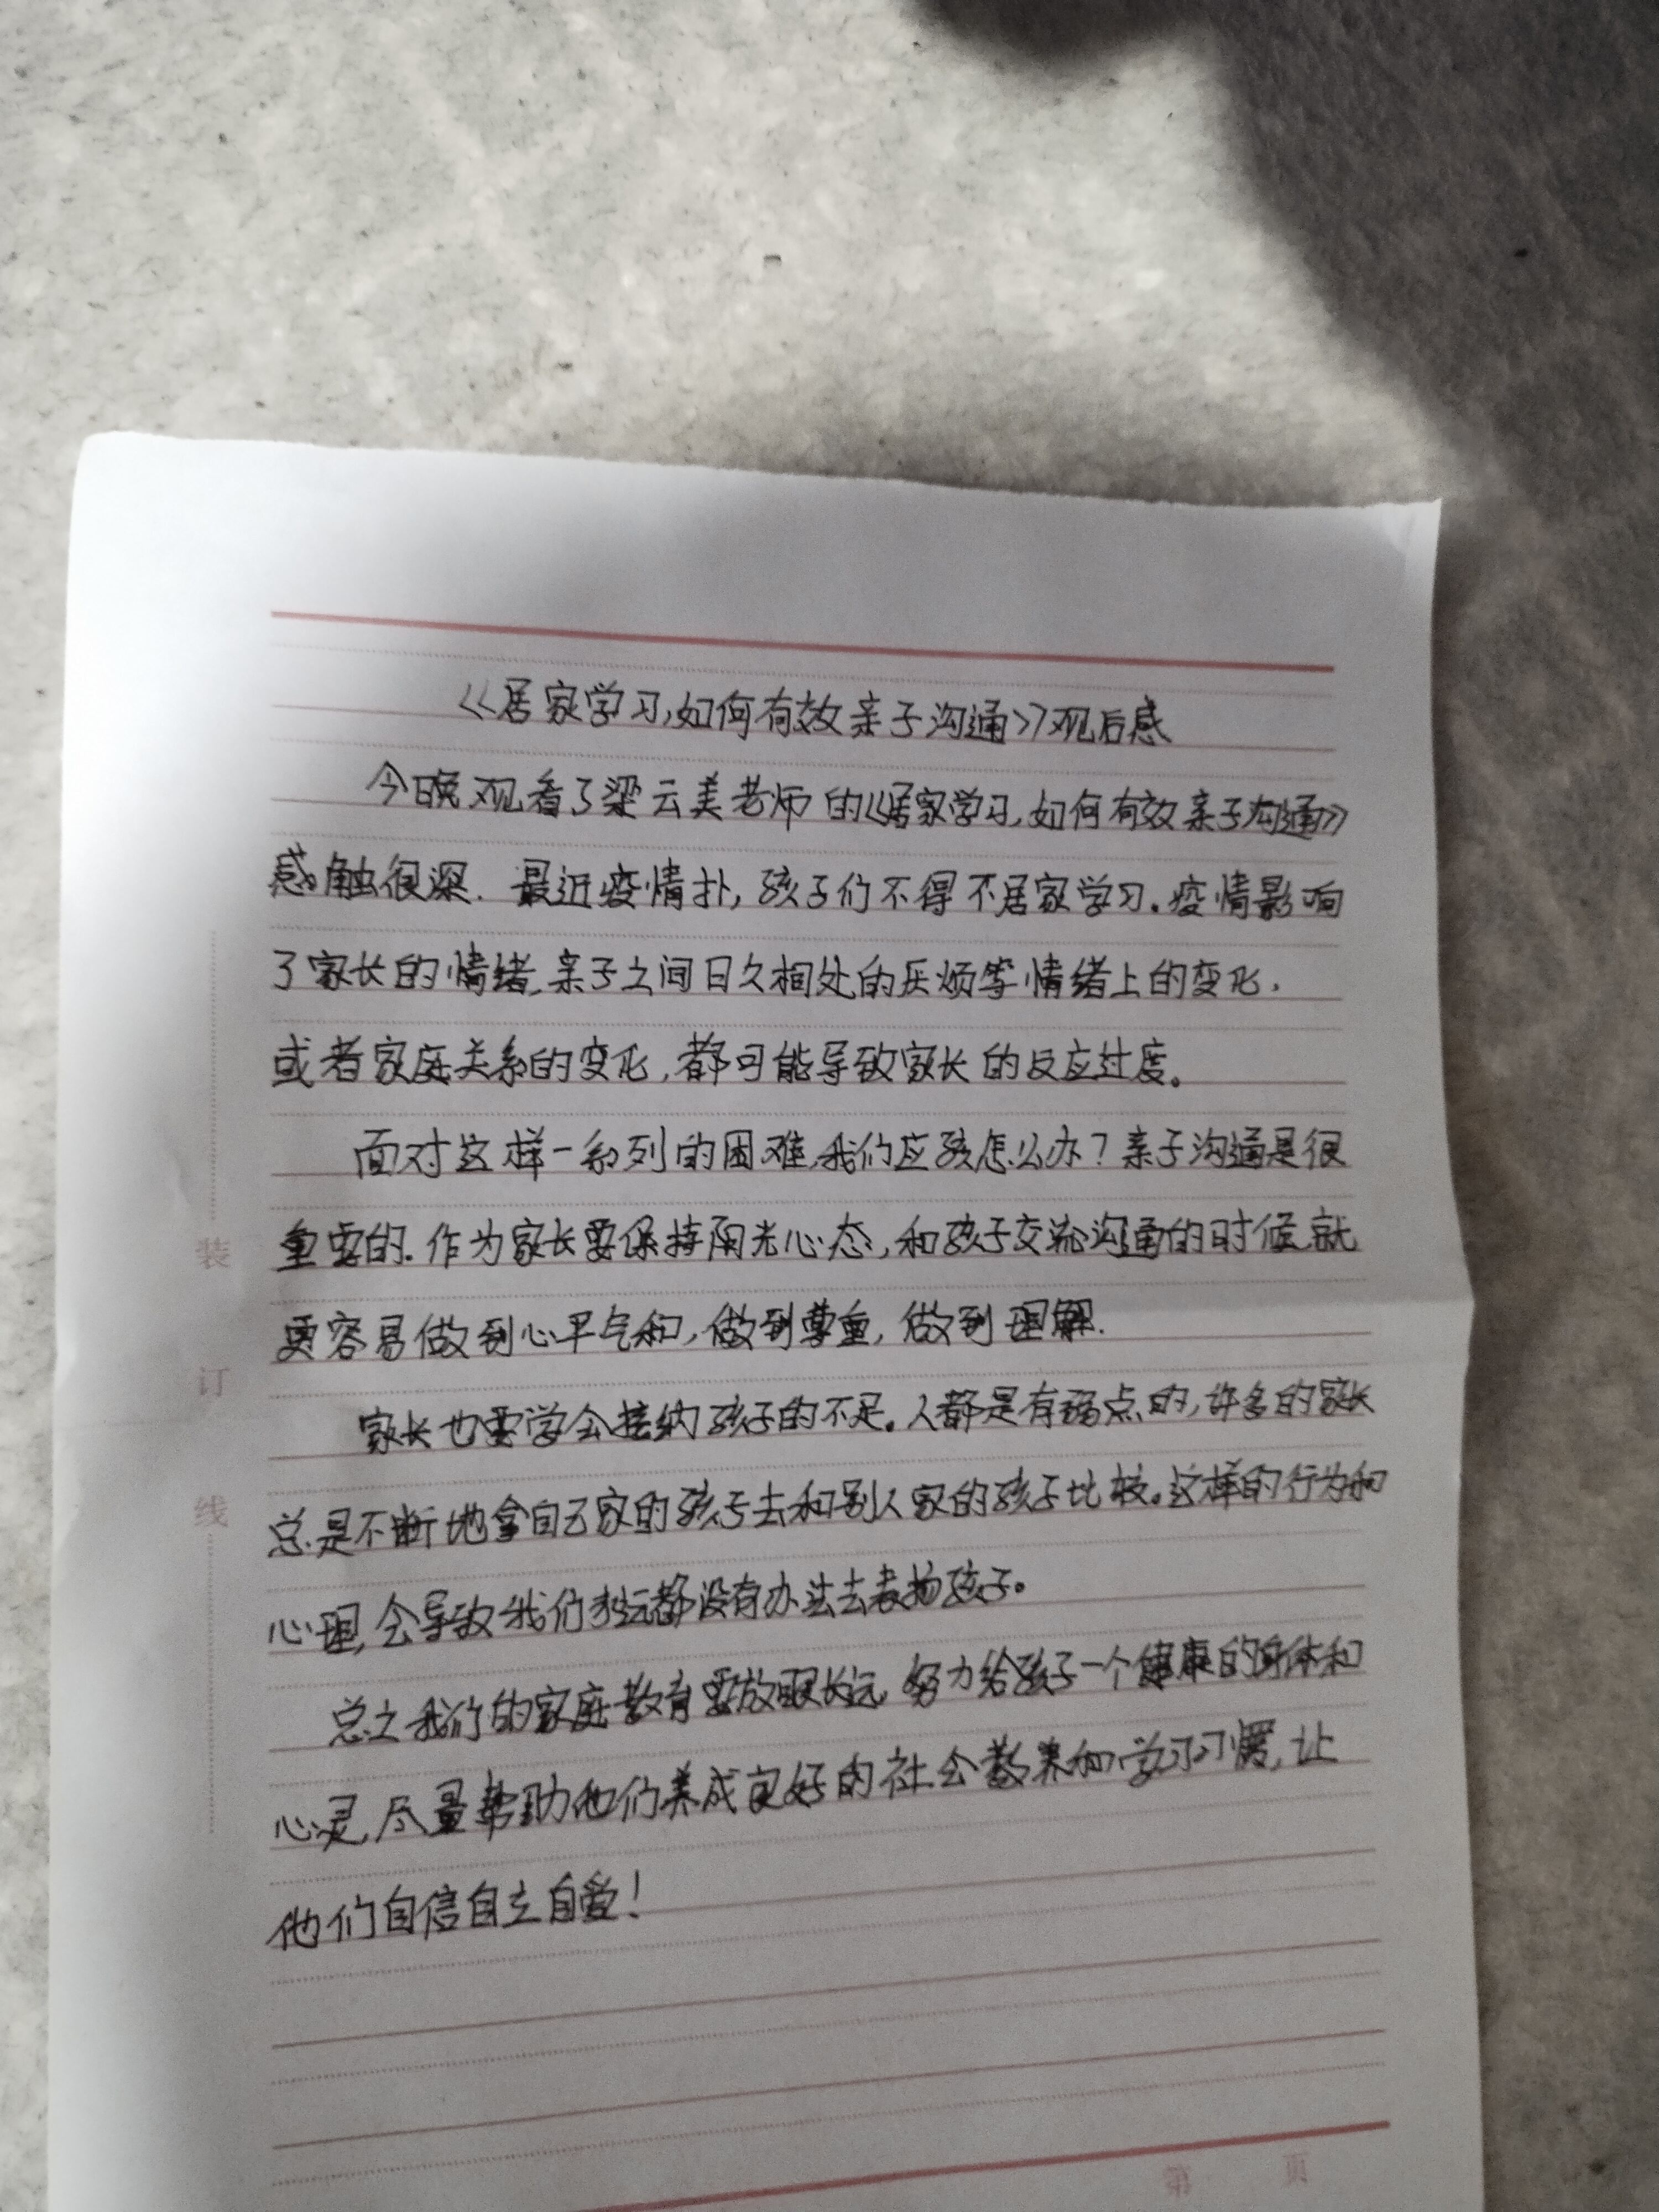 《居家学习,如何有效亲子沟通》观后感
今晚观看了梁云美老师的《居家学习,如何有效亲子沟通》
感触很深. 最近疫情扑,孩子们不得不居家学习.疫情影响
了家长的情绪,亲子之间日久相处的厌烦等情绪上的变化,
或者家庭关系的变化,都可能导致家长的反应过度。
面对这样一系列的困难,我们应该怎么办?亲子沟通是很
重要的.作为家长要保持阳光心态,和孩子交流沟通的时候,就
更容易做到心平气和,做到尊重,做到理解.
家长也要学会接纳孩子的不足。人都是有弱点的,许多的家长
总是不断地拿自己家的孩子去和别人家的孩子比较。这样的行为和
心理,会导致我们永远都没有办法去表扬孩子。
总之我们的家庭教育要放眼长远,努力给孩子一个健康的身体和
心灵,尽量帮助他们养成良好的社会教养和学习习惯,让
他们自信自立自爱!
装
订
线
第 页